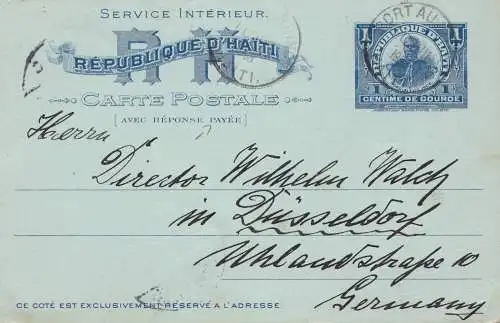 SERVICE INTÉRIEUR.
RH
RÉPUBLIQUE D'HAÏTI
CARTE POSTALE
[AVEC RÉPONSE PAYÉE]
PORT AU
HAITI
RÉPUBLIQUE D'HAÏTI
1 1
1 1
CENTIME DE GOURDE
Herrn
Director Wilhelm Walch
in Düsseldorf
Uhlandstraße 10
Germany
CE COTÉ EST EXCLUSIVEMENT RÉSERVÉ A L'ADRESSE